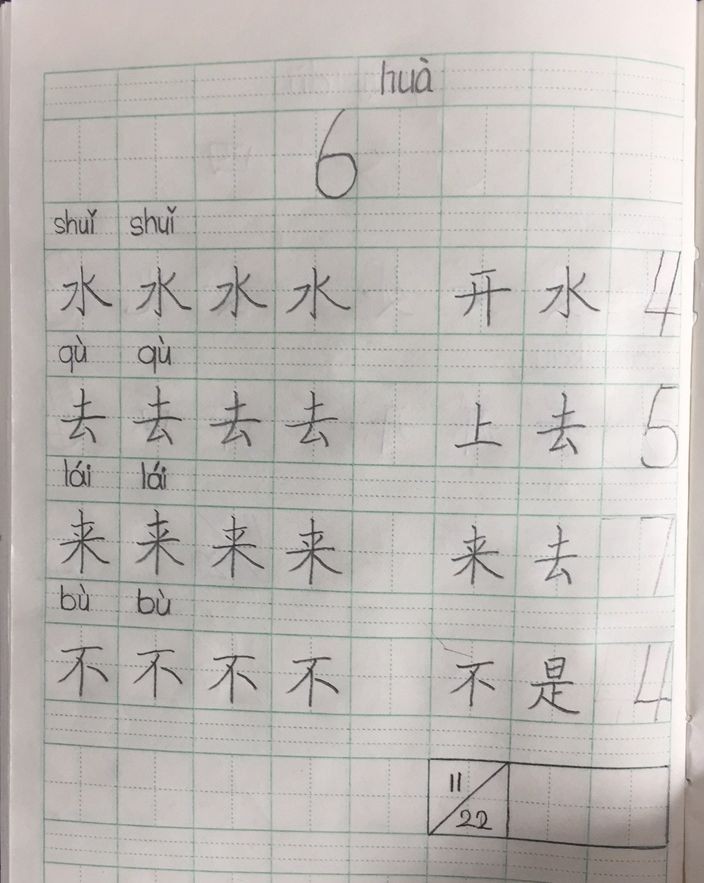 huà
6
shuǐ shuǐ
水 水 水 水 开 水 4
qù qù
去 去 去 去 上 去 5
lái lái
来 来 来 来 来 去 7
bù bù
不 不 不 不 不 是 4
11
22